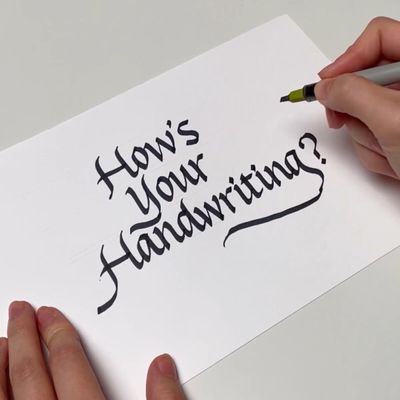 How's
Your
Handwriting?